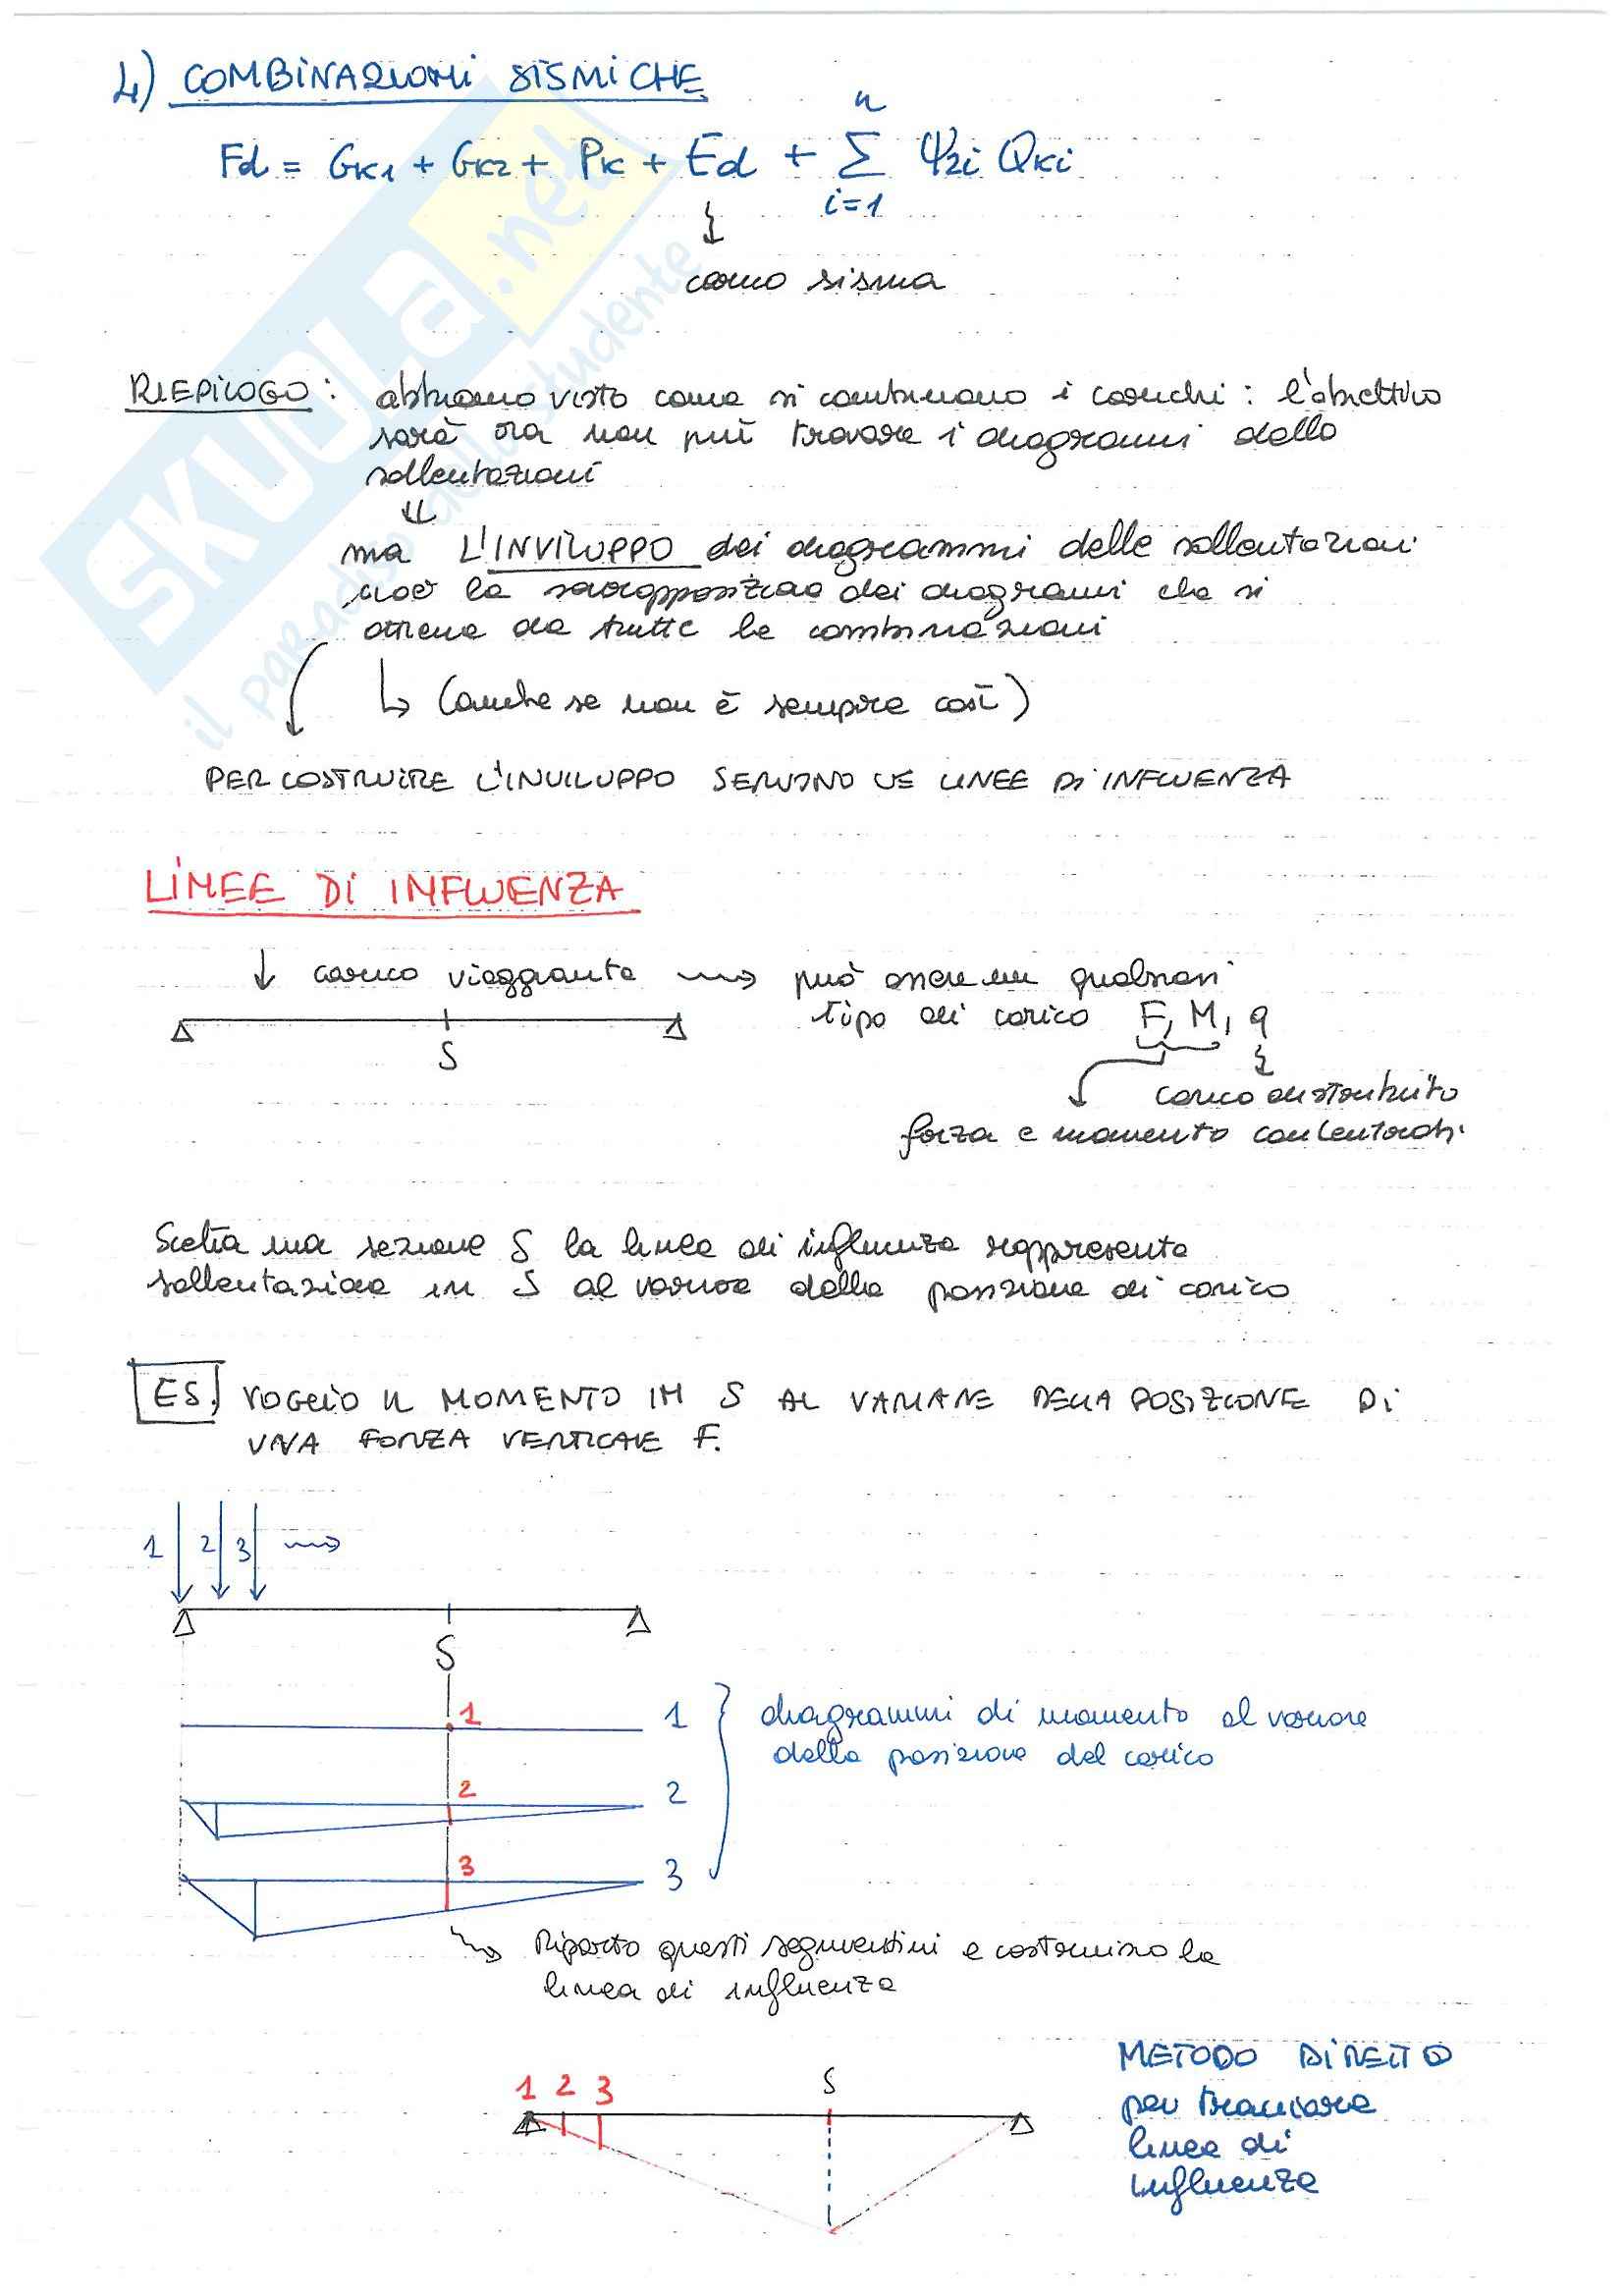 4) COMBINAZIONI SISMICHE
n
Fd = GK1 + GK2 + PK + Ed + Σ Ψ2i QKi
i=1
carico sisma
RIEPILOGO: abbiamo visto come si combinano i carichi: l'obiettivo
sarà ora non più trovare i diagrammi delle
sollecitazioni
ma L'INVILUPPO dei diagrammi delle sollecitazioni
cioè la sovrapposizione dei diagrammi che si
ottiene da tutte le combinazioni
(anche se non è sempre così)
PER COSTRUIRE L'INVILUPPO SERVONO LE LINEE DI INFLUENZA
LINEE DI INFLUENZA
carico viaggiante può essere un qualsiasi
tipo di carico F, M, q
S
carico distribuito
forza e momento concentrati
Scelta una sezione S la linea di influenza rappresenta
sollecitazione in S al variare della posizione di carico
ES. VOGLIO IL MOMENTO IN S AL VARIARE DELLA POSIZIONE DI
UNA FORZA VERTICALE F.
1 2 3
S
1 1 diagrammi di momento al variare
della posizione del carico
2 2
3 3
Riporto questi segmentini e costruisco la
linea di influenza
METODO DIRETTO
1 2 3 S
per tracciare
linea di
influenza
SKUOLA.net
il paradiso dello studente